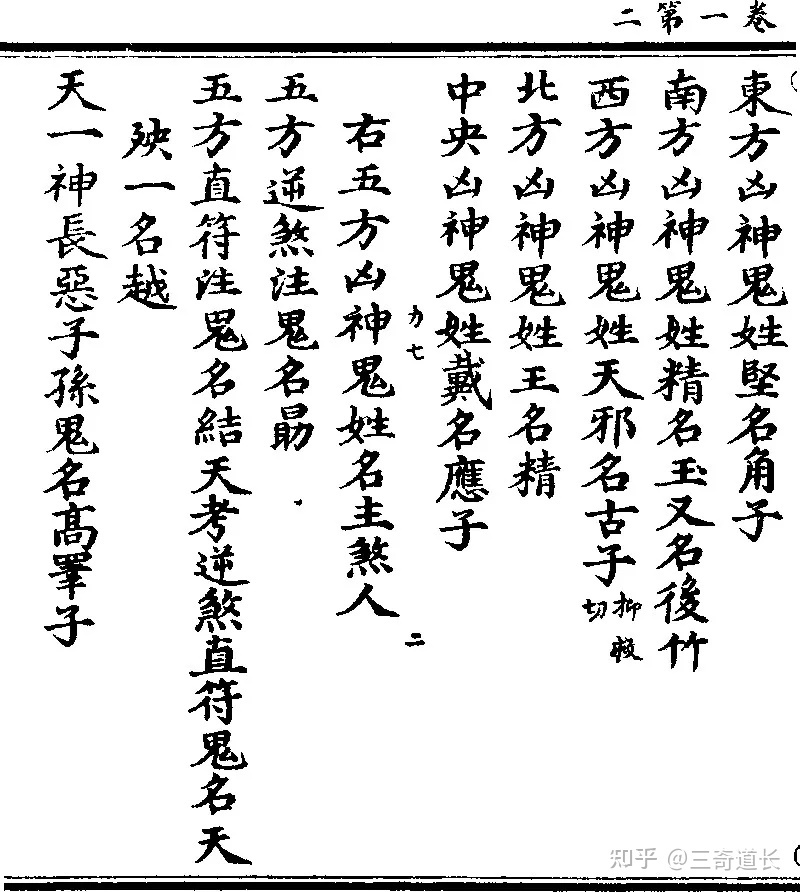 卷一第二
東方凶神鬼姓堅名角子
南方凶神鬼姓精名玉又名後竹
西方凶神鬼姓天邪名古子
切
北方凶神鬼姓王名精
中央凶神鬼姓戴名應子
力七
右五方凶神鬼姓名主煞人
二
五方逆煞注鬼名勗
五方直符注鬼名結天考逆煞直符鬼名天
殃一名越
天一神長惡子孫鬼名高睪子
知乎 @三奇道长